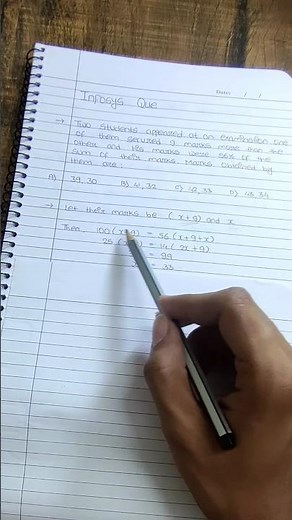 Date: / /
Infosys Que
→ Two students appeared at an examination one
of them secured 9 marks more than the
other and His marks were 56% of the
sum of their marks. Marks obtained by
them are:
A) 39, 30 B) 41, 32 C) 42, 33 D) 43, 34
→ Let their marks be (x+9) and x
Then 100 (x+9) = 56 (x+9+x)
25 = 14 (2x+9)
= 99
= 33